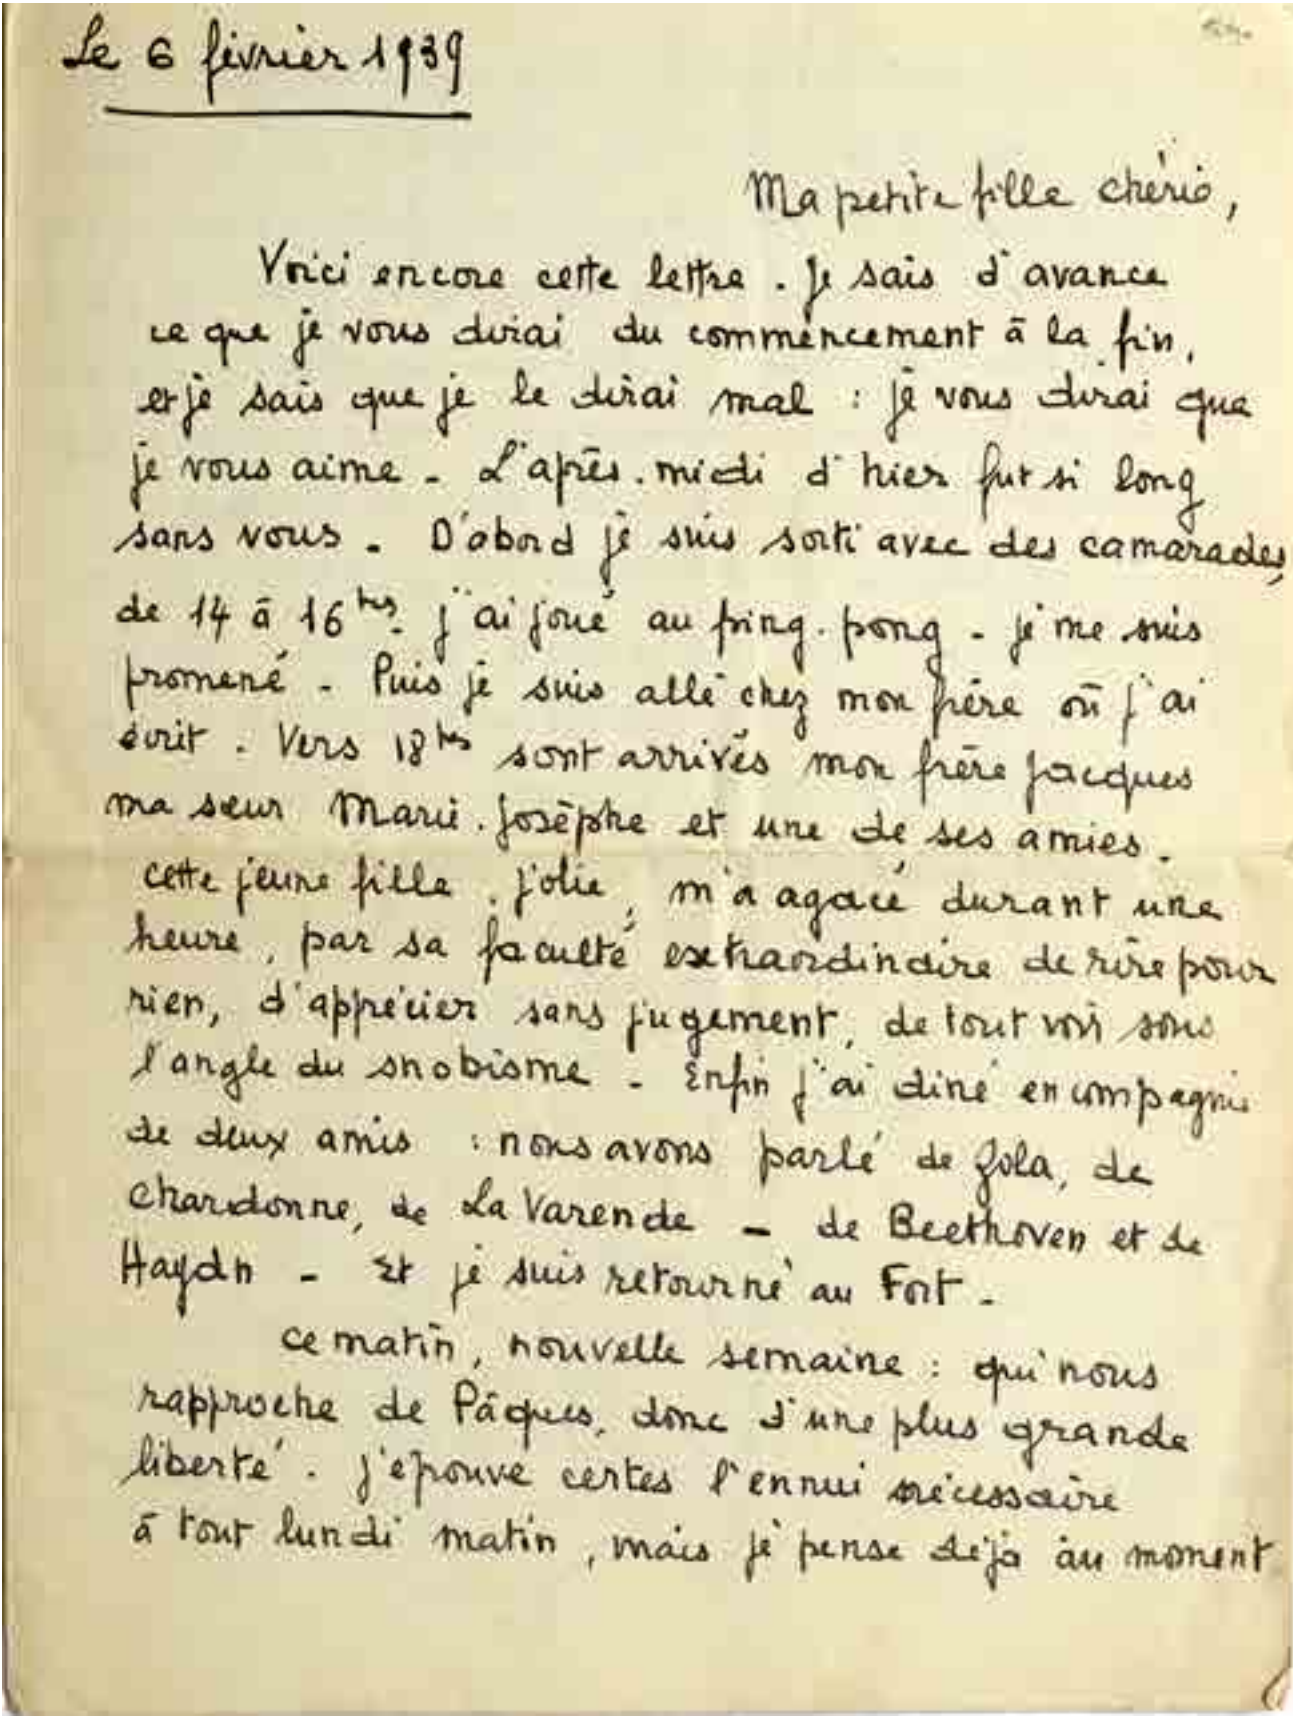 Le 6 février 1939
Ma petite fille chérie,
Voici encore cette lettre. Je sais d'avance
ce que je vous dirai du commencement à la fin,
et je sais que je le dirai mal : je vous dirai que
je vous aime - L'après-midi d'hier fut si long
sans vous - D'abord je suis sorti avec des camarades,
de 14 à 16 hrs. j'ai joué au ping-pong - je me suis
promené - Puis je suis allé chez mon frère où j'ai
écrit. Vers 18 hrs sont arrivés mon frère Jacques
ma sœur Marie-Josèphe et une de ses amies -
Cette jeune fille, jolie, m'a agacé durant une
heure, par sa faculté extraordinaire de rire pour
rien, d'apprécier sans jugement, de tout voir sous
l'angle du snobisme - Enfin j'ai diné en compagnie
de deux amis : nous avons parlé de Zola, de
Chardonne, de La Varende - de Beethoven et de
Haydn - Et je suis retourné au Fort -
Ce matin, nouvelle semaine : qui nous
rapproche de Pâques, donc d'une plus grande
liberté. J'éprouve certes l'ennui nécessaire
à tout lundi matin, mais je pense déjà au moment